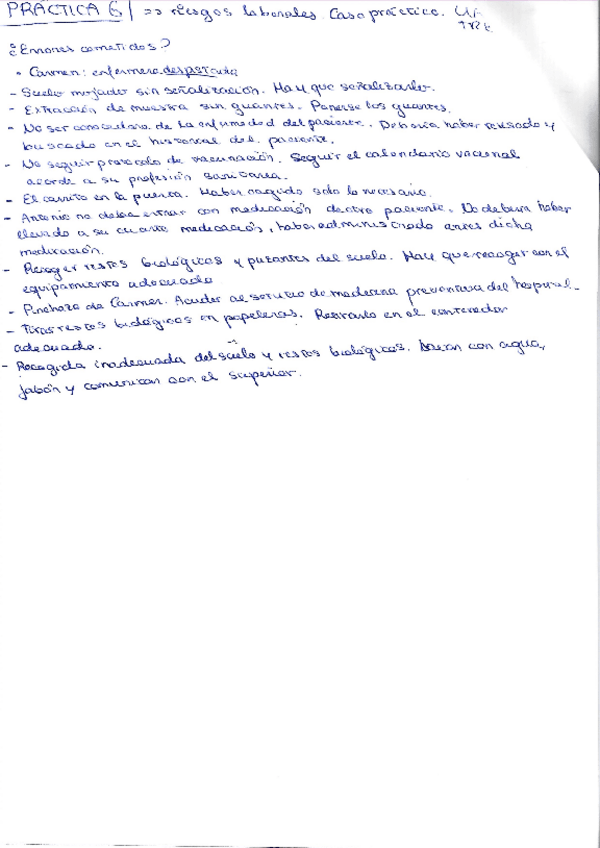 PRÁCTICA 6 => riesgos laborales. Caso práctico.
¿Errores cometidos?
• Carmen: enfermera
- Suelo mojado sin señalización. Hay que señalizarlo.
- Extracción de muestra sin guantes. Ponerse los guantes.
- No ser conocedora de la enfermedad del paciente. Debería haber revisado y
buscado en el historial del paciente.
- No seguir protocolo de vacunación. Seguir el calendario vacunal
acorde a su profesión sanitaria.
- El carrito en la puerta. Haber cogido solo lo necesario.
- Antonio no debía entrar con medicación dentro paciente. No debería haber
llevado a su cuarto medicación, haber administrado antes dicha
medicación.
- Recoger restos biológicos y punzantes del suelo. Hay que recoger con el
equipamiento adecuado
- Pinchazo de Carmen. Acudir al servicio de medicina preventiva del hospital.
- Tirar restos biológicos en papeleras. Retirarlo en el contenedor
adecuado.
- Recogida inadecuada del suelo y restos biológicos. con agua,
jabón y comunicar con el superior.